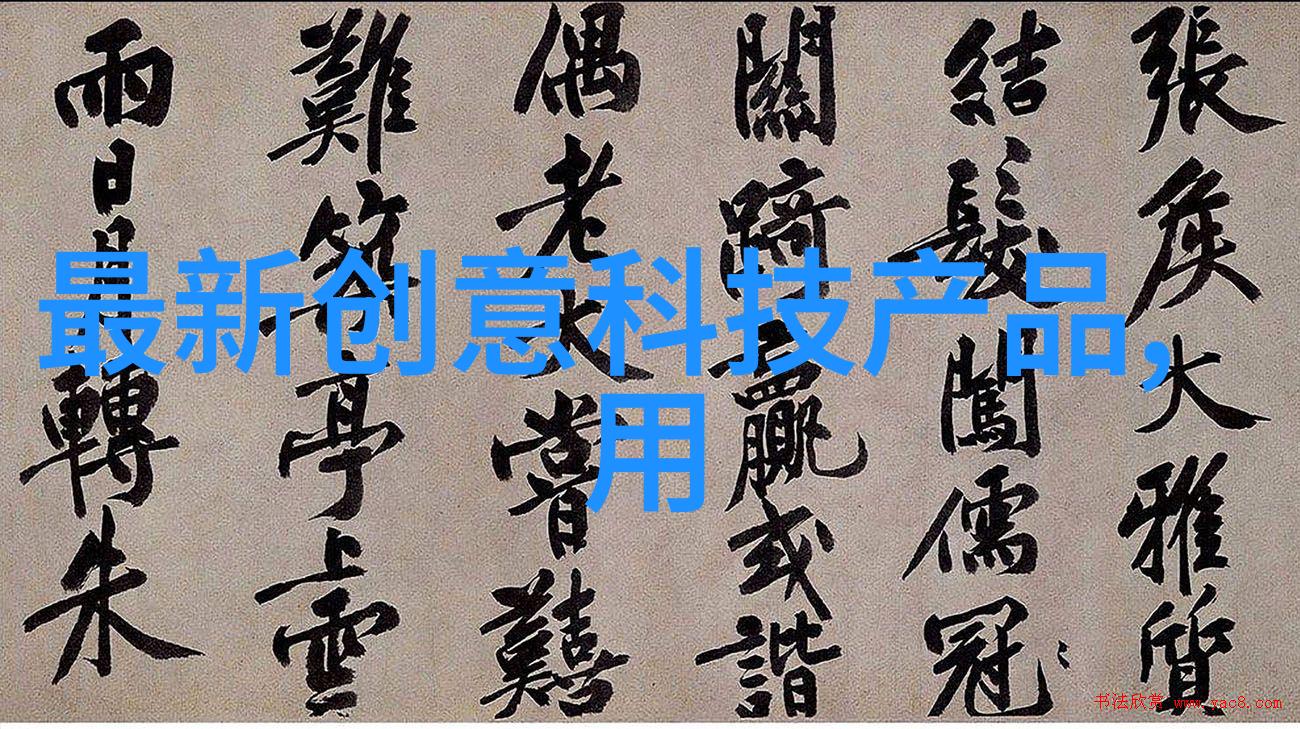 張矦大雅質
結髮闖儒冠
關踦或諧
偶老大嘗囏
難築亭上雲
雨日月轉朱
最新创意科技产品,
用
书法欣赏 www.yac8.com